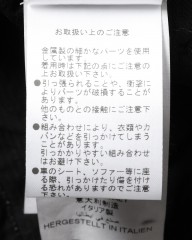 お取扱い上のご注意
金属製の細かなパーツを使用
しています。
着用時は下記の点にご注意の
上お取扱い下さい。
●引っ張られることや、衝撃に
よりパーツが破損することが
あります。
他のものとの接触にご注意下
さい。
●組み合わせにより、衣類やカ
バンなどを引っかけてしまう
ことがあります。
引っかかりやすい組み合わせ
はお避け下さい。
●車のシート、ソファー等に座
る際、引っかけたり傷を付け
る恐れがありますのでご注意
下さい。
意大利制造
イタリア製
HERGESTELLT IN ITALIEN